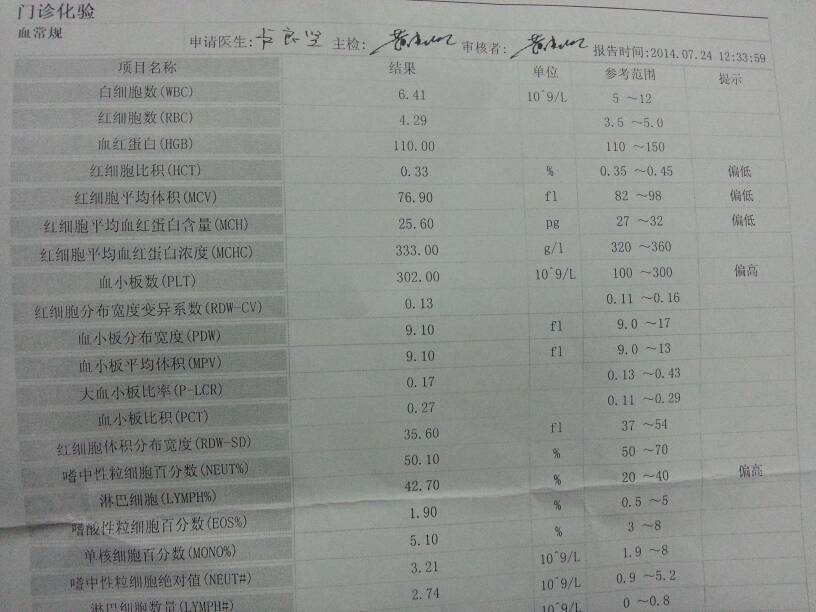 门诊化验
血常规
申请医生: 主检: 审核者: 报告时间:2014.07.24 12:33:59
项目名称 结果 单位 参考范围 提示
白细胞数(WBC) 6.41 10^9/L 5 ～12
红细胞数(RBC) 4.29 3.5 ～5.0
血红蛋白(HGB) 110.00 110 ～150
红细胞比积(HCT) 0.33 % 0.35 ～0.45 偏低
红细胞平均体积(MCV) 76.90 fl 82 ～98 偏低
红细胞平均血红蛋白含量(MCH) 25.60 pg 27 ～32 偏低
红细胞平均血红蛋白浓度(MCHC) 333.00 g/l 320 ～360
血小板数(PLT) 302.00 10^9/L 100 ～300 偏高
红细胞分布宽度变异系数(RDW-CV) 0.13 0.11 ～0.16
血小板分布宽度(PDW) 9.10 fl 9.0 ～17
血小板平均体积(MPV) 9.10 fl 9.0 ～13
大血小板比率(P-LCR) 0.17 0.13 ～0.43
血小板比积(PCT) 0.27 0.11 ～0.29
红细胞体积分布宽度(RDW-SD) 35.60 fl 37 ～54
嗜中性粒细胞百分数(NEUT%) 50.10 % 50 ～70
淋巴细胞(LYMPH%) 42.70 % 20 ～40 偏高
嗜酸性粒细胞百分数(EOS%) 1.90 % 0.5 ～5
单核细胞百分数(MONO%) 5.10 % 3 ～8
嗜中性粒细胞绝对值(NEUT#) 3.21 10^9/L 1.9 ～8
淋巴细胞数量(LYMPH#) 2.74 10^9/L 0.9 ～5.2
10^9/L 0 ～0.8